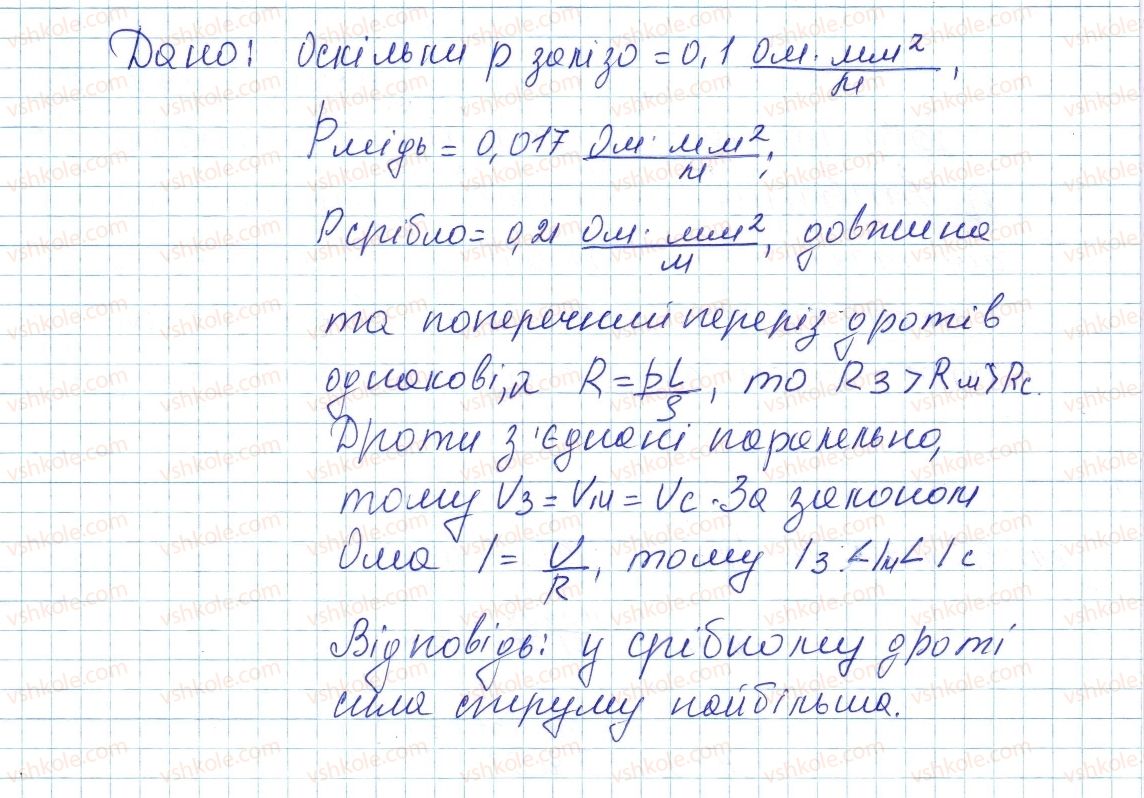 Дано: Оскільки ρ залізо = 0,1 Ом·мм²/м,
ρ мідь = 0,017 Ом·мм²/м;
ρ срібло = 0,21 Ом·мм²/м, довжина
та поперечний переріз дротів
однакові, а R = ρL/S, то Rз > Rм > Rс.
Дроти з'єднані паралельно,
тому Uз = Uм = Uс. За законом
Ома I = U/R, тому Iз < Iм < Iс
Відповідь: у срібному дроті
сила струму найбільша.